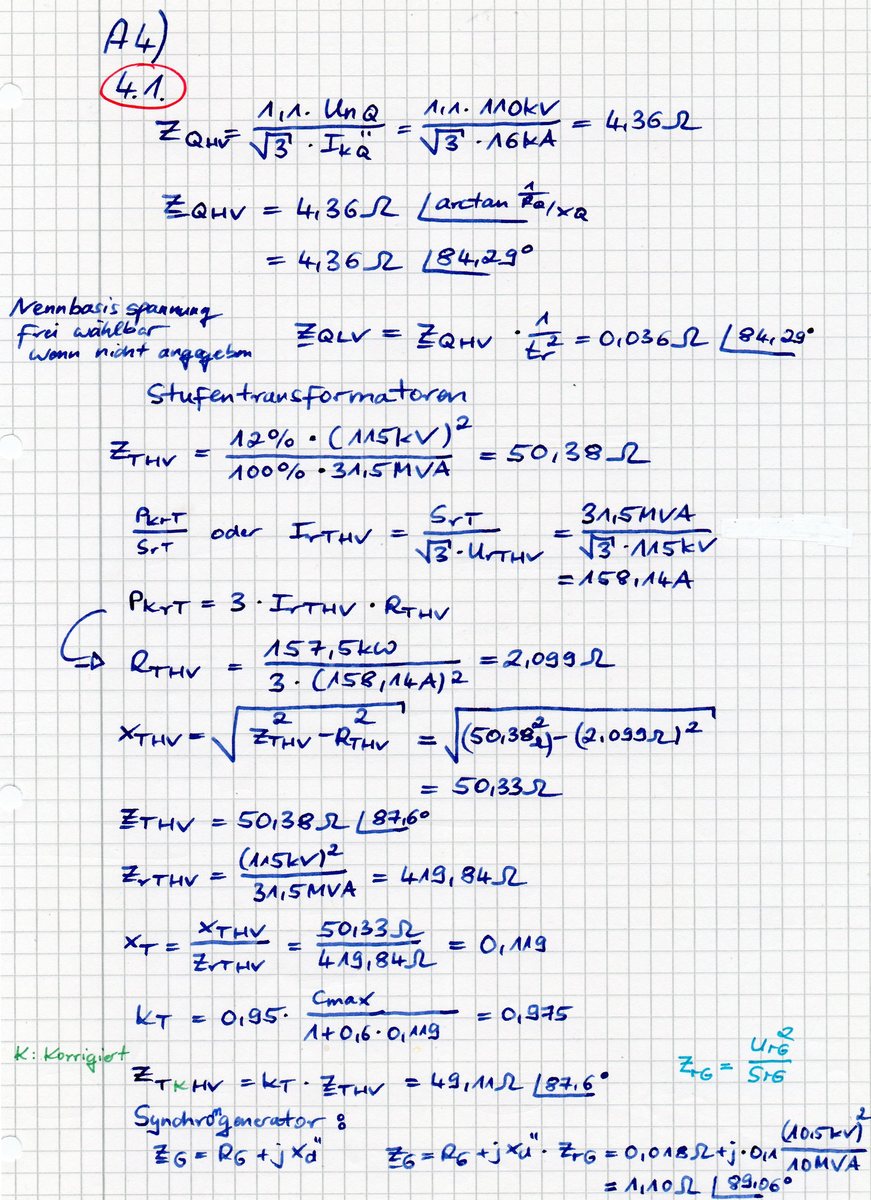 A4)
4.1.
Z_QHV = (1,1 · UnQ)/(√3 · I_kQ'') = (1,1 · 110kV)/(√3 · 16kA) = 4,36 Ω
Z_QHV = 4,36 Ω ∠arctan 1/R_Q/X_Q
= 4,36 Ω ∠84,29°
Nennbasisspannung
frei wählbar
wenn nicht angegeben
Z_QLV = Z_QHV · 1/t_r² = 0,036 Ω ∠84,29°
Stufentransformatoren
Z_THV = (12% · (115kV)²)/(100% · 31,5MVA) = 50,38 Ω
P_krT/S_rT oder I_rTHV = S_rT/(√3 · U_rTHV) = 31,5MVA/(√3 · 115kV)
= 158,14A
P_krT = 3 · I_rTHV · R_THV
⇒ R_THV = 157,5kW/(3 · (158,14A)²) = 2,099 Ω
X_THV = √(Z_THV² - R_THV²) = √((50,38Ω)² - (2,099Ω)²)
= 50,33 Ω
Z_THV = 50,38 Ω ∠87,6°
Z_rTHV = (115kV)²/31,5MVA = 419,84 Ω
x_T = X_THV/Z_rTHV = 50,33Ω/419,84Ω = 0,119
k_T = 0,95 · Cmax/(1+0,6·0,119) = 0,975
K: Korrigiert
Z_TKHV = k_T · Z_THV = 49,11Ω ∠87,6°
Z_rG = U_rG²/S_rG
Synchrongenerator:
Z_G = R_G + j X_d''
Z_G = R_G + j X_d'' · Z_rG = 0,018Ω + j · 0,1 (10,5kV)²/10MVA
= 1,10Ω ∠89,06°